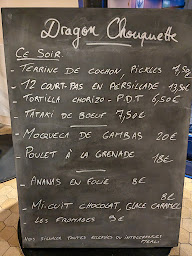 Dragon Chouquette
CE SOIR:
- TERRINE DE COCHON, PICKLES 7,50
- 12 COURT-PAS EN PERSILLADE - 13,50€
- TORTILLA CHORIZO - P.D.T 6,50€
- TATAKI DE BOEUF 7,50€
- MOQUECA DE GAMBAS 20€
- POULET À LA GRENADE
18€
- ANANAS EN FOLIE 8€
8€
- MI-CUIT CHOCOLAT, GLACE CARAMEL
LES FROMAGES 9€
NOUS SIGNALER TOUTES ALLERGIES OU INTOLÉRANCES